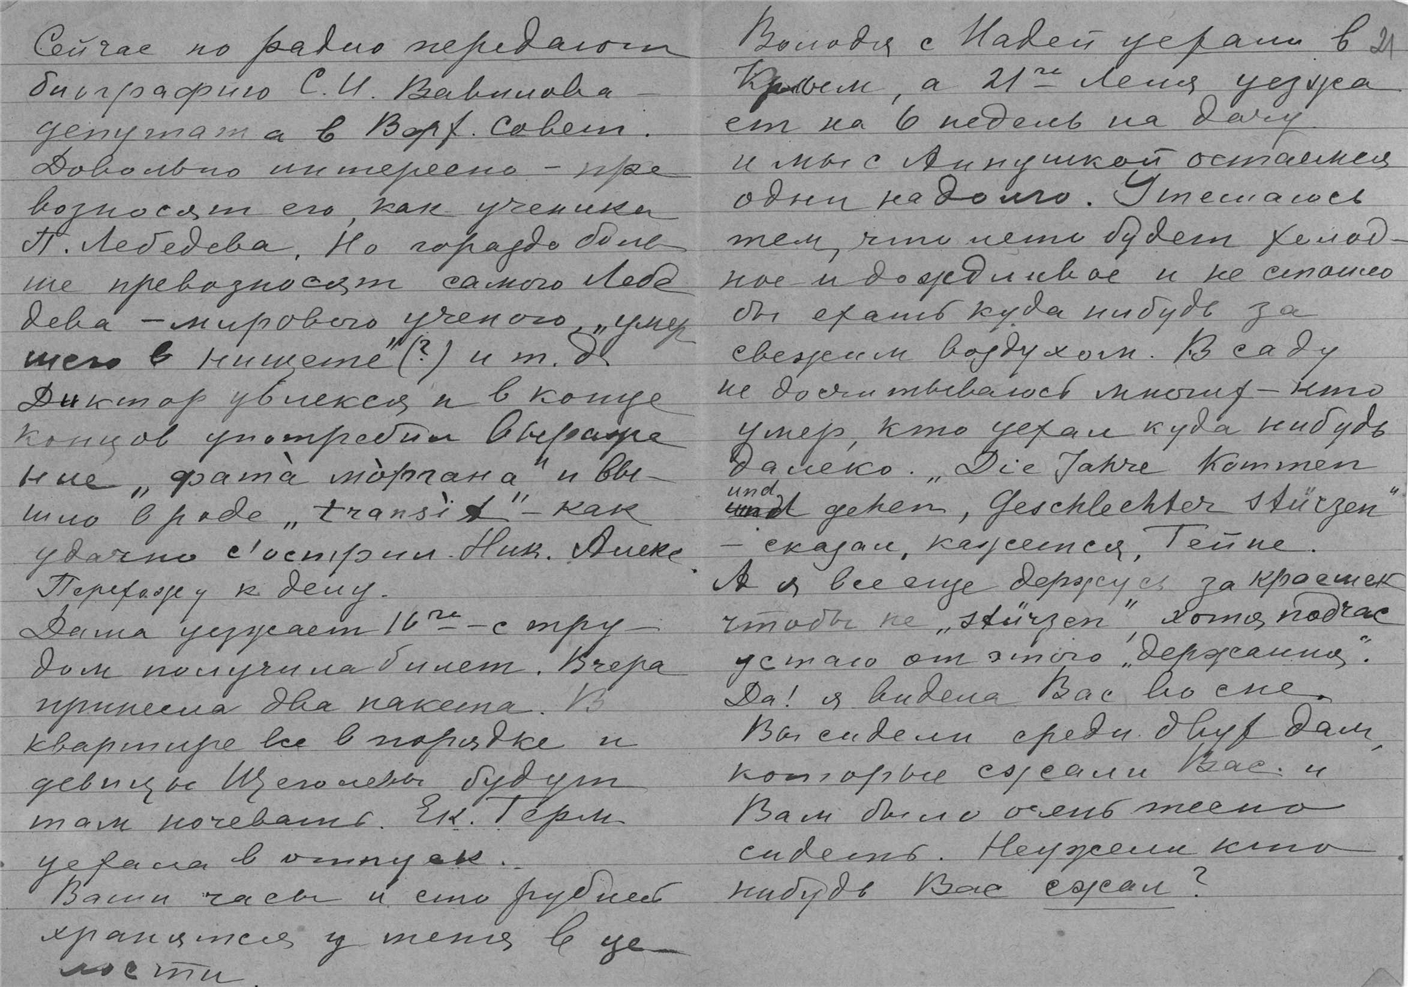 Сейчас по радио передают
биографию С.И. Вавилова –
депутата в Верх. Совет.
Довольно интересно – пре
возносят его, как ученика
П. Лебедева. Но гораздо боль
ше превозносят самого Лебе
дева – мирового ученого, „умер
шего в нищете" (?) и т.д.
Диктор увлекся и в конце
концов употребил выраже
ние „фата̀ мо̀ргана" и вы–
шло вроде „transit" – как
удачно с'острил Ник. Алекс.
Перехожу к делу.
Дама уезжает 16го – с тру–
дом получила билет. Вчера
принесла два пакета. В
квартире все в порядке и
девицы Щеголевы будут
там ночевать. Ек. Герм.
уехала в отпуск.
Ваши часы и сто рублей
хранятся у меня в це–
лости.
21
Володя с Надей уехали в
Крым, а 21го Леля уезжа
ет на 6 недель на дачу
и мы с Аннушкой остаемся
одни надолго. Утешаюсь
тем, что лето будет холод–
ное и дождливое и не стоило
бы ехать куда нибудь за
свежим воздухом. В саду
не досчитываюсь многих – кто
умер, кто уехал куда нибудь
далеко. „Die Jahre kommen
und gehen, Geschlechter stürzen"
– сказал, кажется, Гейне.
А я все еще держусь за краешек
чтобы не „stürzen", хотя подчас
устаю от этого „держания".
Да! я видела Вас во сне.
Вы сидели среди двух дам,
которые сжали Вас и
Вам было очень тесно
сидеть. Неужели кто
нибудь Вас сжал?